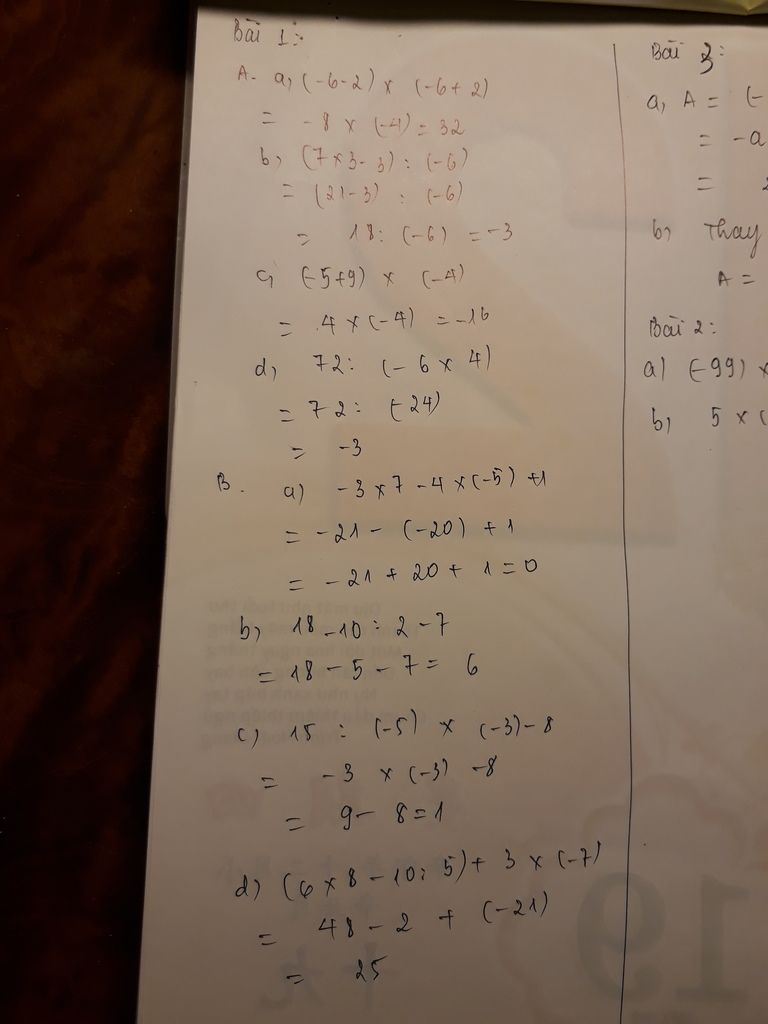 Bài 1:
A. a, (-6-2) x (-6+2)
= -8 x (-4) = 32
b, (7x3-3) : (-6)
= (21-3) : (-6)
= 18: (-6) = -3
c, (-5+9) x (-4)
= 4 x (-4) = -16
d, 72: (-6 x 4)
= 72: (-24)
= -3
B. a) -3 x 7 - 4 x (-5) +1
= -21 - (-20) + 1
= -21 + 20 + 1 = 0
b, 18 - 10 : 2 - 7
= 18 - 5 - 7 = 6
c, 15 : (-5) x (-3) - 8
= -3 x (-3) -8
= 9 - 8 = 1
d) (6 x 8 - 10: 5) + 3 x (-7)
= 48 - 2 + (-21)
= 25
Bài 3:
a, A = (-
= -a
=
b, Thay
A =
Bài 2:
a) (-99) x
b, 5 x (
19